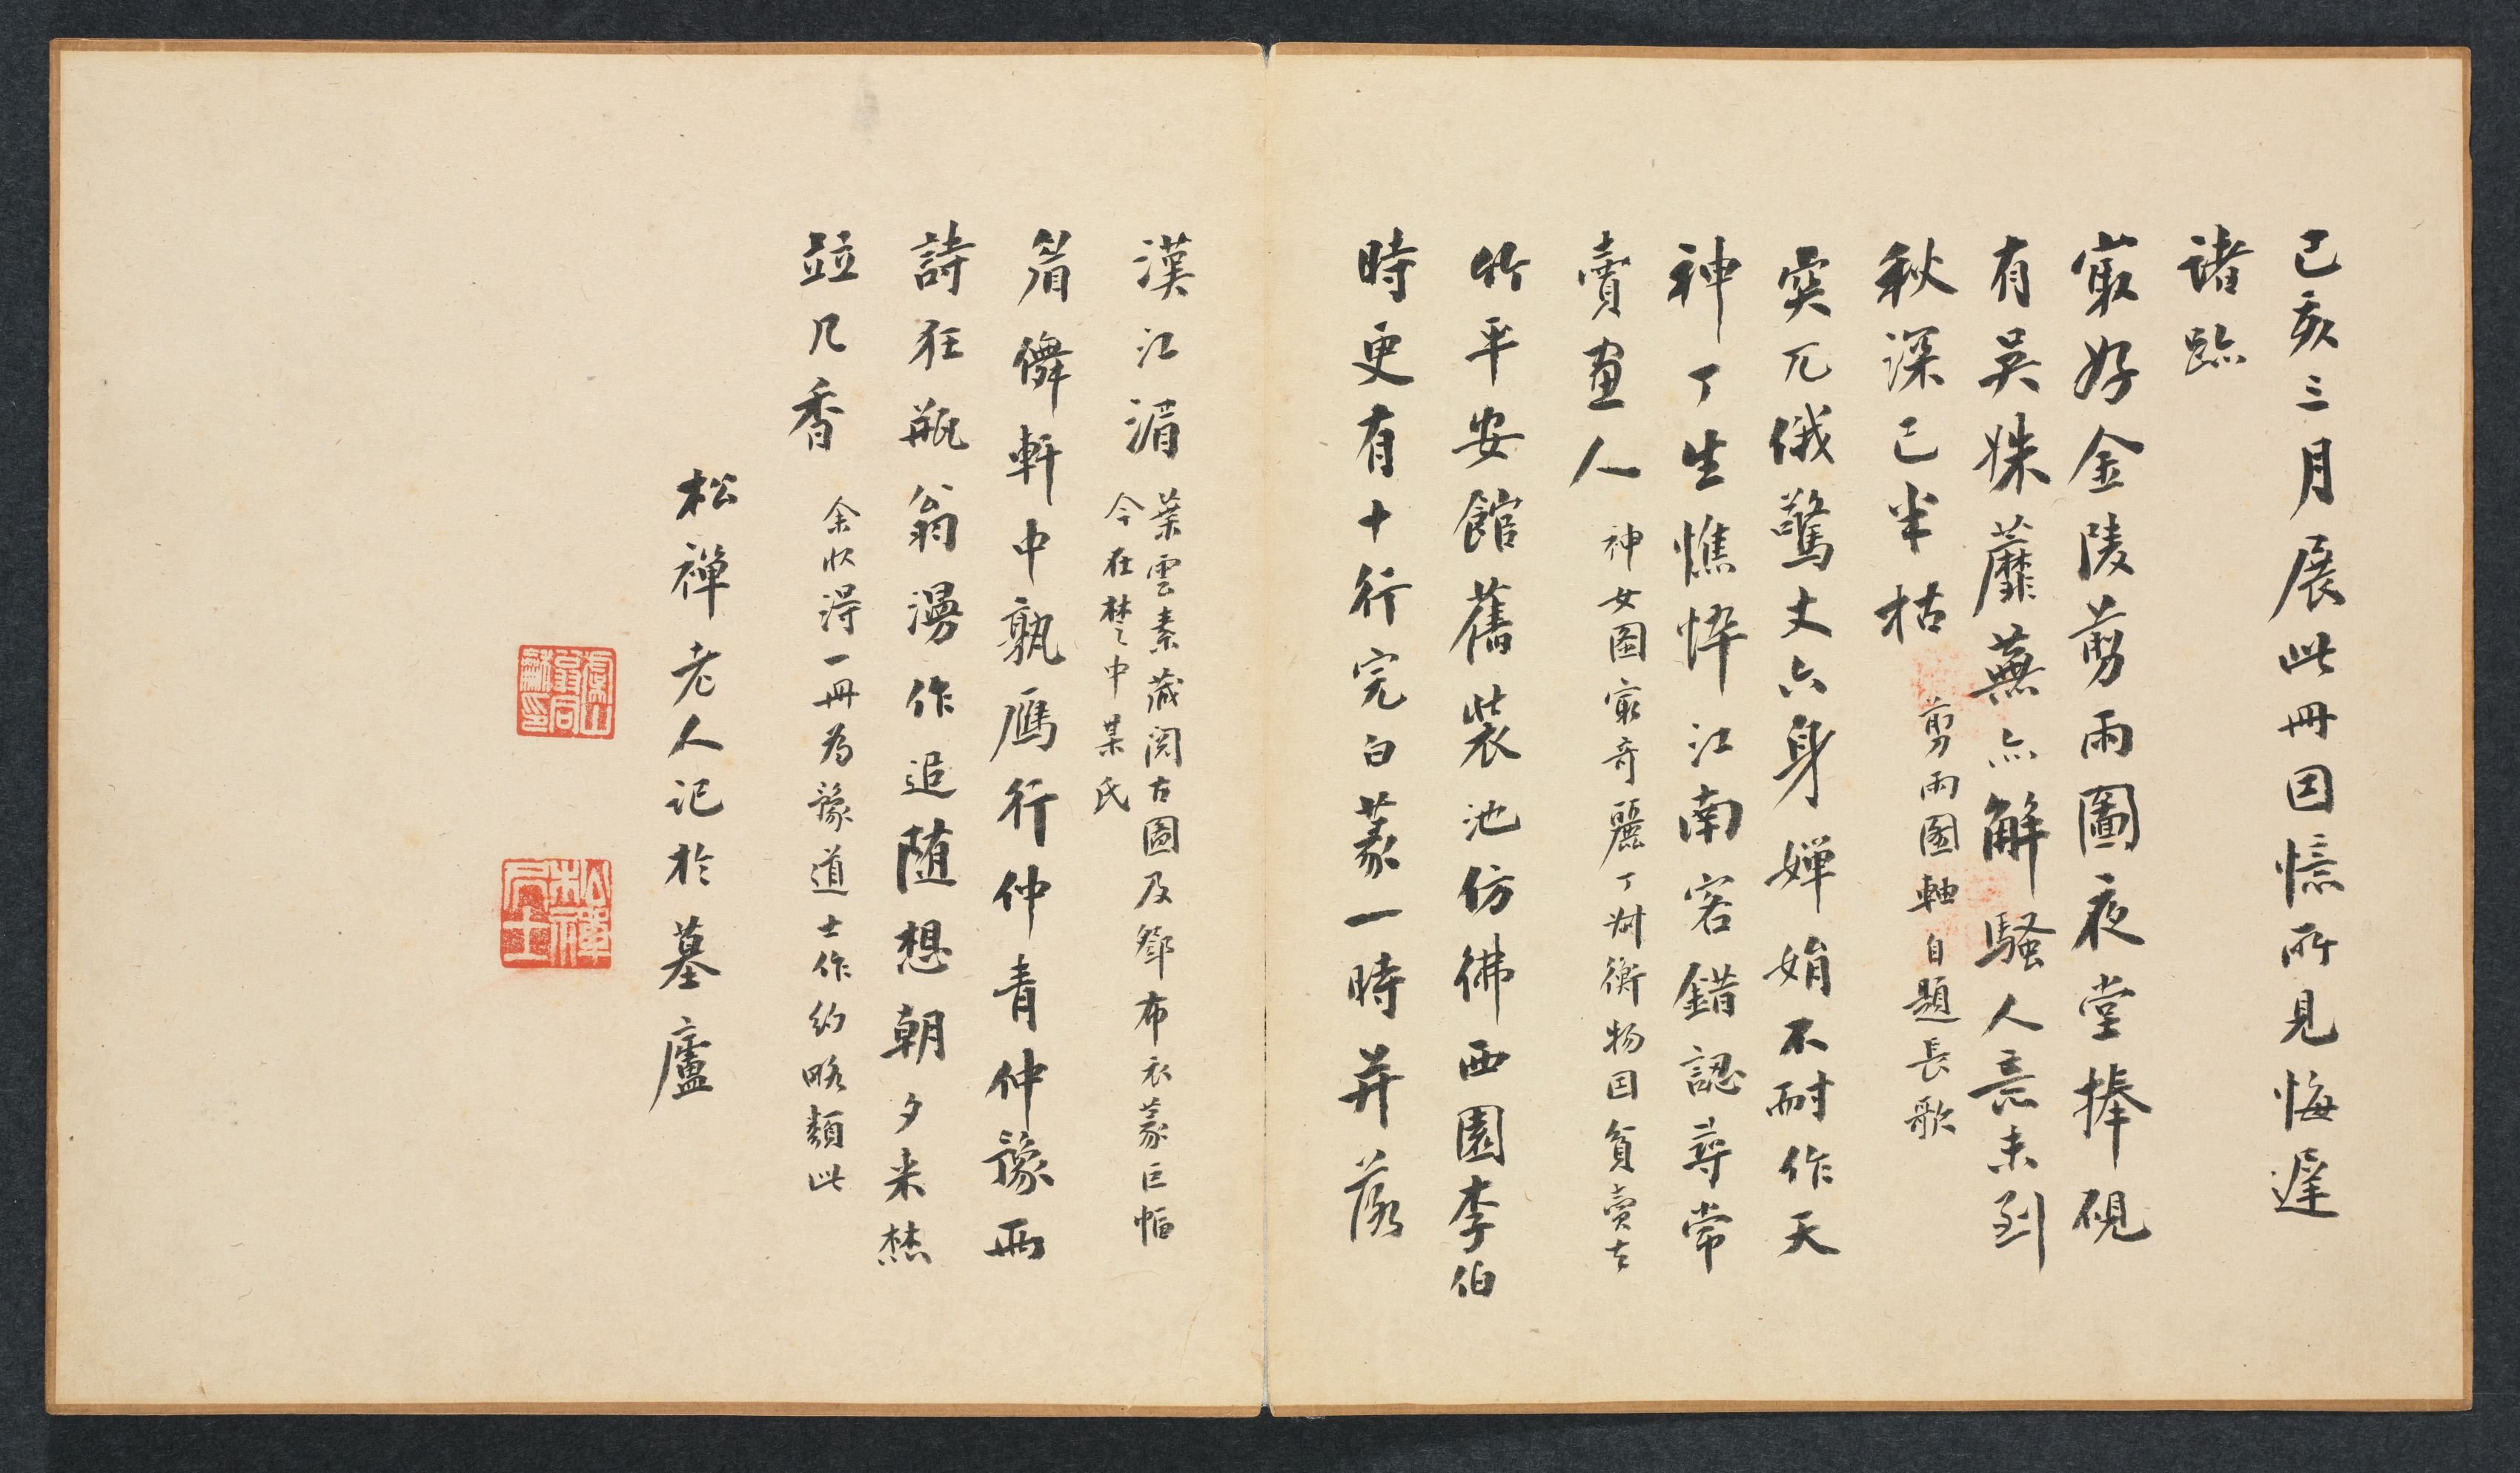 己亥三月展此冊因憶所見悔遲
諸跡
冣好金陵剪雨圖夜堂捧硯
有吳姝蘼蕪亦解騷人意未到
秋深已半枯
剪雨圖軸自題長歌
突兀俄驚丈六身嬋娟不耐作天
神丁生憔悴江南客錯認尋常
賣畫人
神女圖冣奇麗丁叔衡物因貧賣去
竹平安館舊裝池仿彿西園李伯
時更有十行完白篆一時并落
漢江湄
葉雲素藏閱古圖及鄧布衣篆巨幅
今在楚中某氏
眉僯軒中孰鴈行仲青仲豫兩
詩狂瓶翁漫作追隨想朝夕米㯫
竝几香
余收得一冊為豫道士作約略類此
松禪老人記於墓廬
虞山翁同龢印
松禪居士